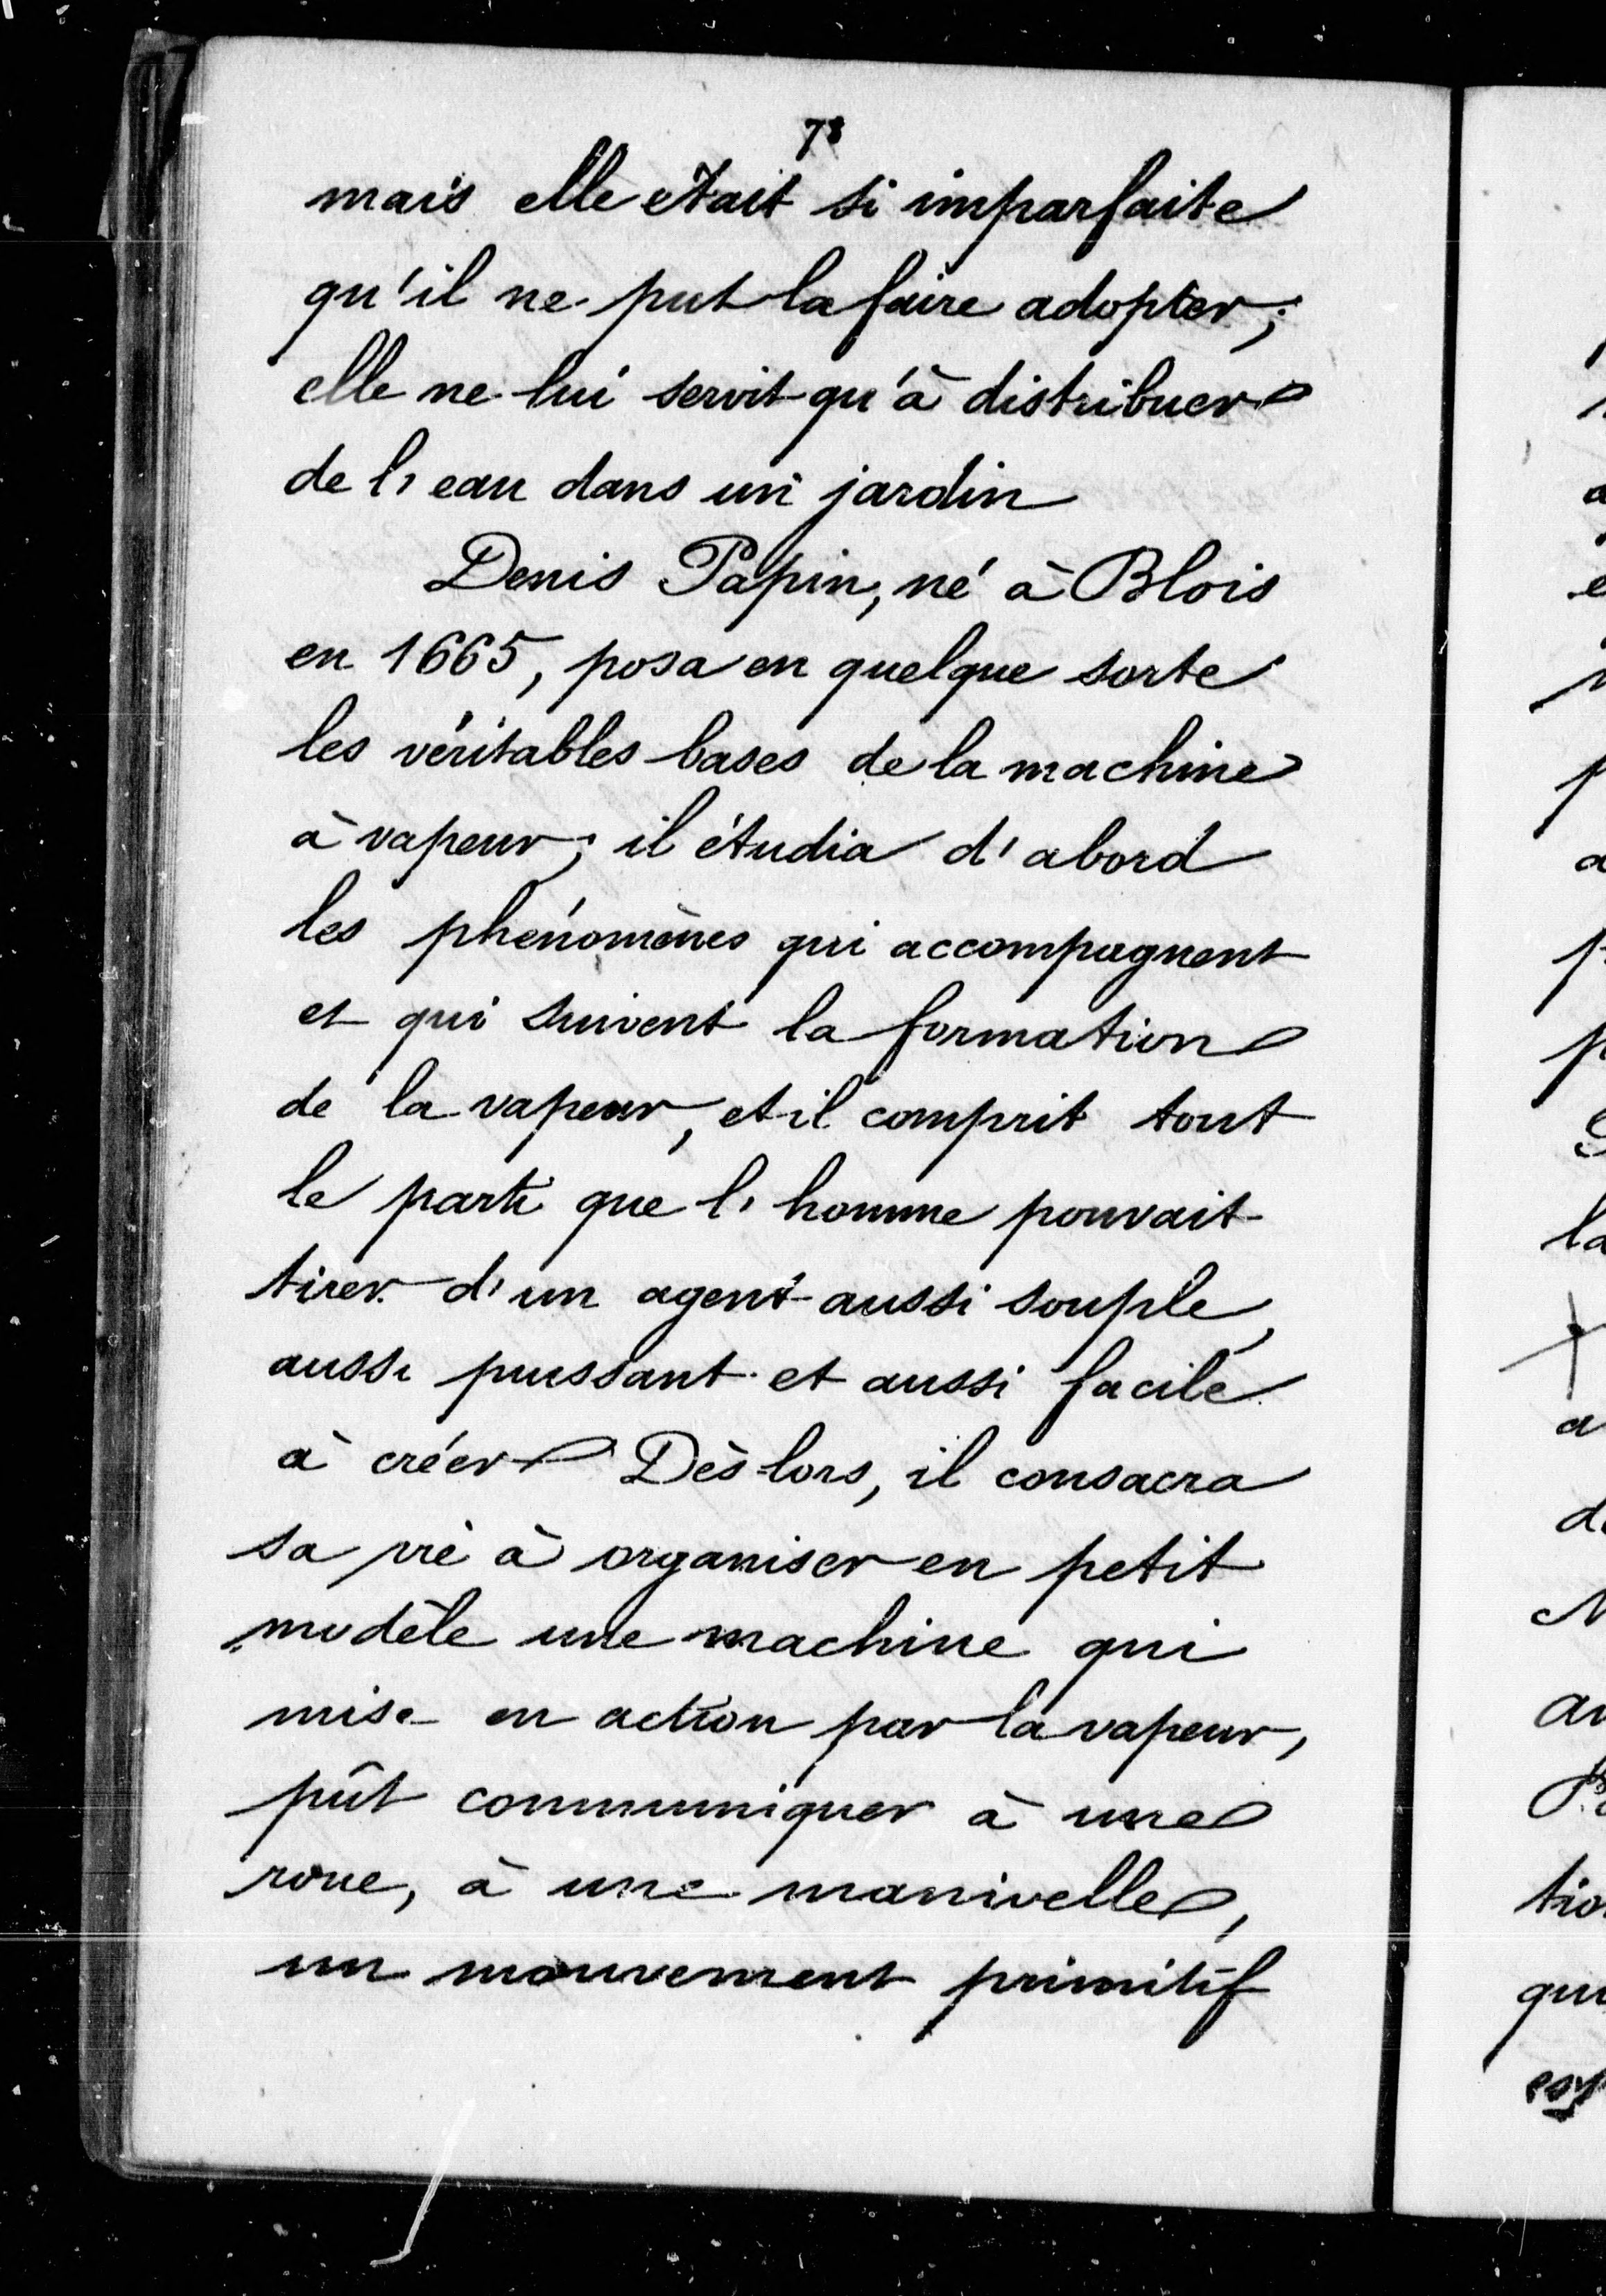 78
mais elle était si imparfaite
qu'il ne put la faire adopter;
elle ne lui servit qu'à distribuer
de l'eau dans un jardin
Denis Papin, né à Blois
en 1665, posa en quelque sorte
les véritables bases de la machine
à vapeur; il étudia d'abord
les phénomènes qui accompagnent
et qui suivent la formation
de la vapeur, et il comprit tout
le parti que l'homme pouvait
tirer d'un agent aussi souple,
aussi puissant et aussi facile
à créer Dès-lors, il consacra
sa vie à organiser en petit
modèle une machine qui
mise en action par la vapeur,
pût communiquer à une
roue, à une manivelle,
un mouvement primitif